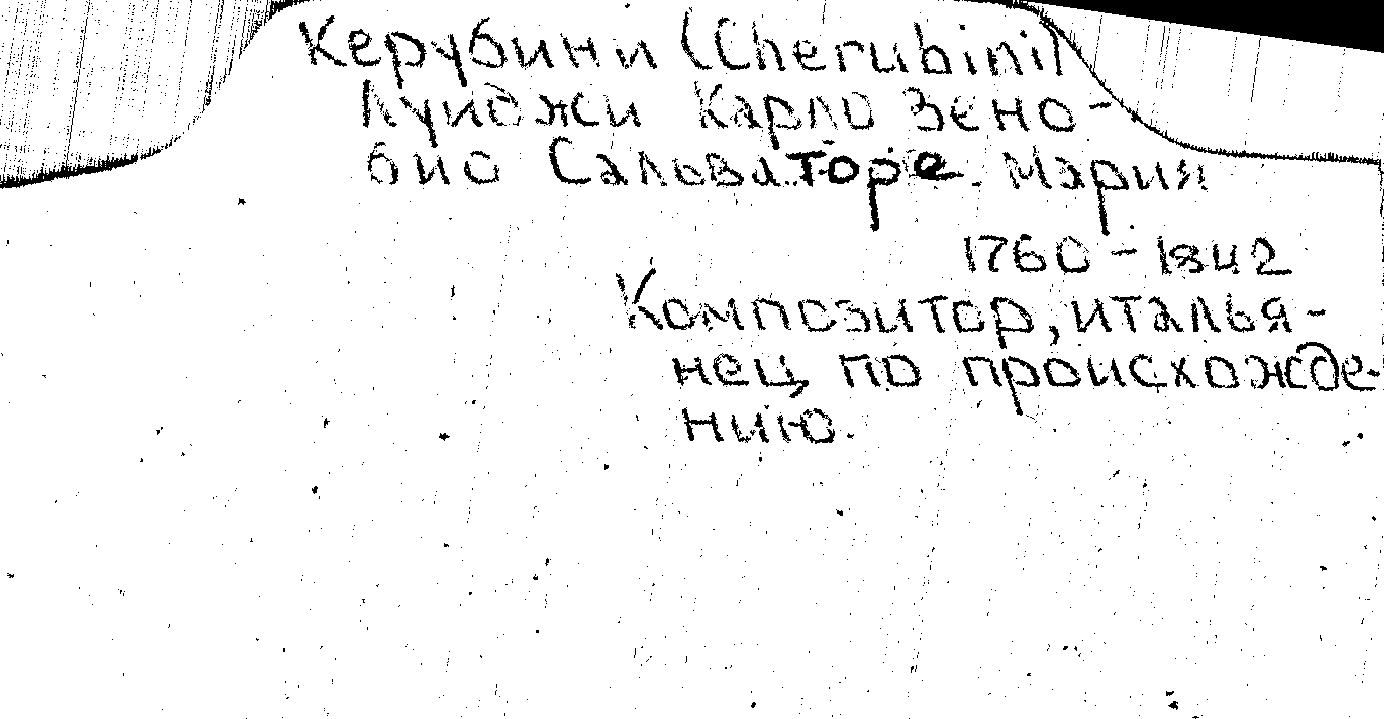 Керубини (Cherubini)
Луиджи Карло Зено-
био Сальваторе Мария
1760-1842
Композитор, италья-
нец по происхожде-
нию.